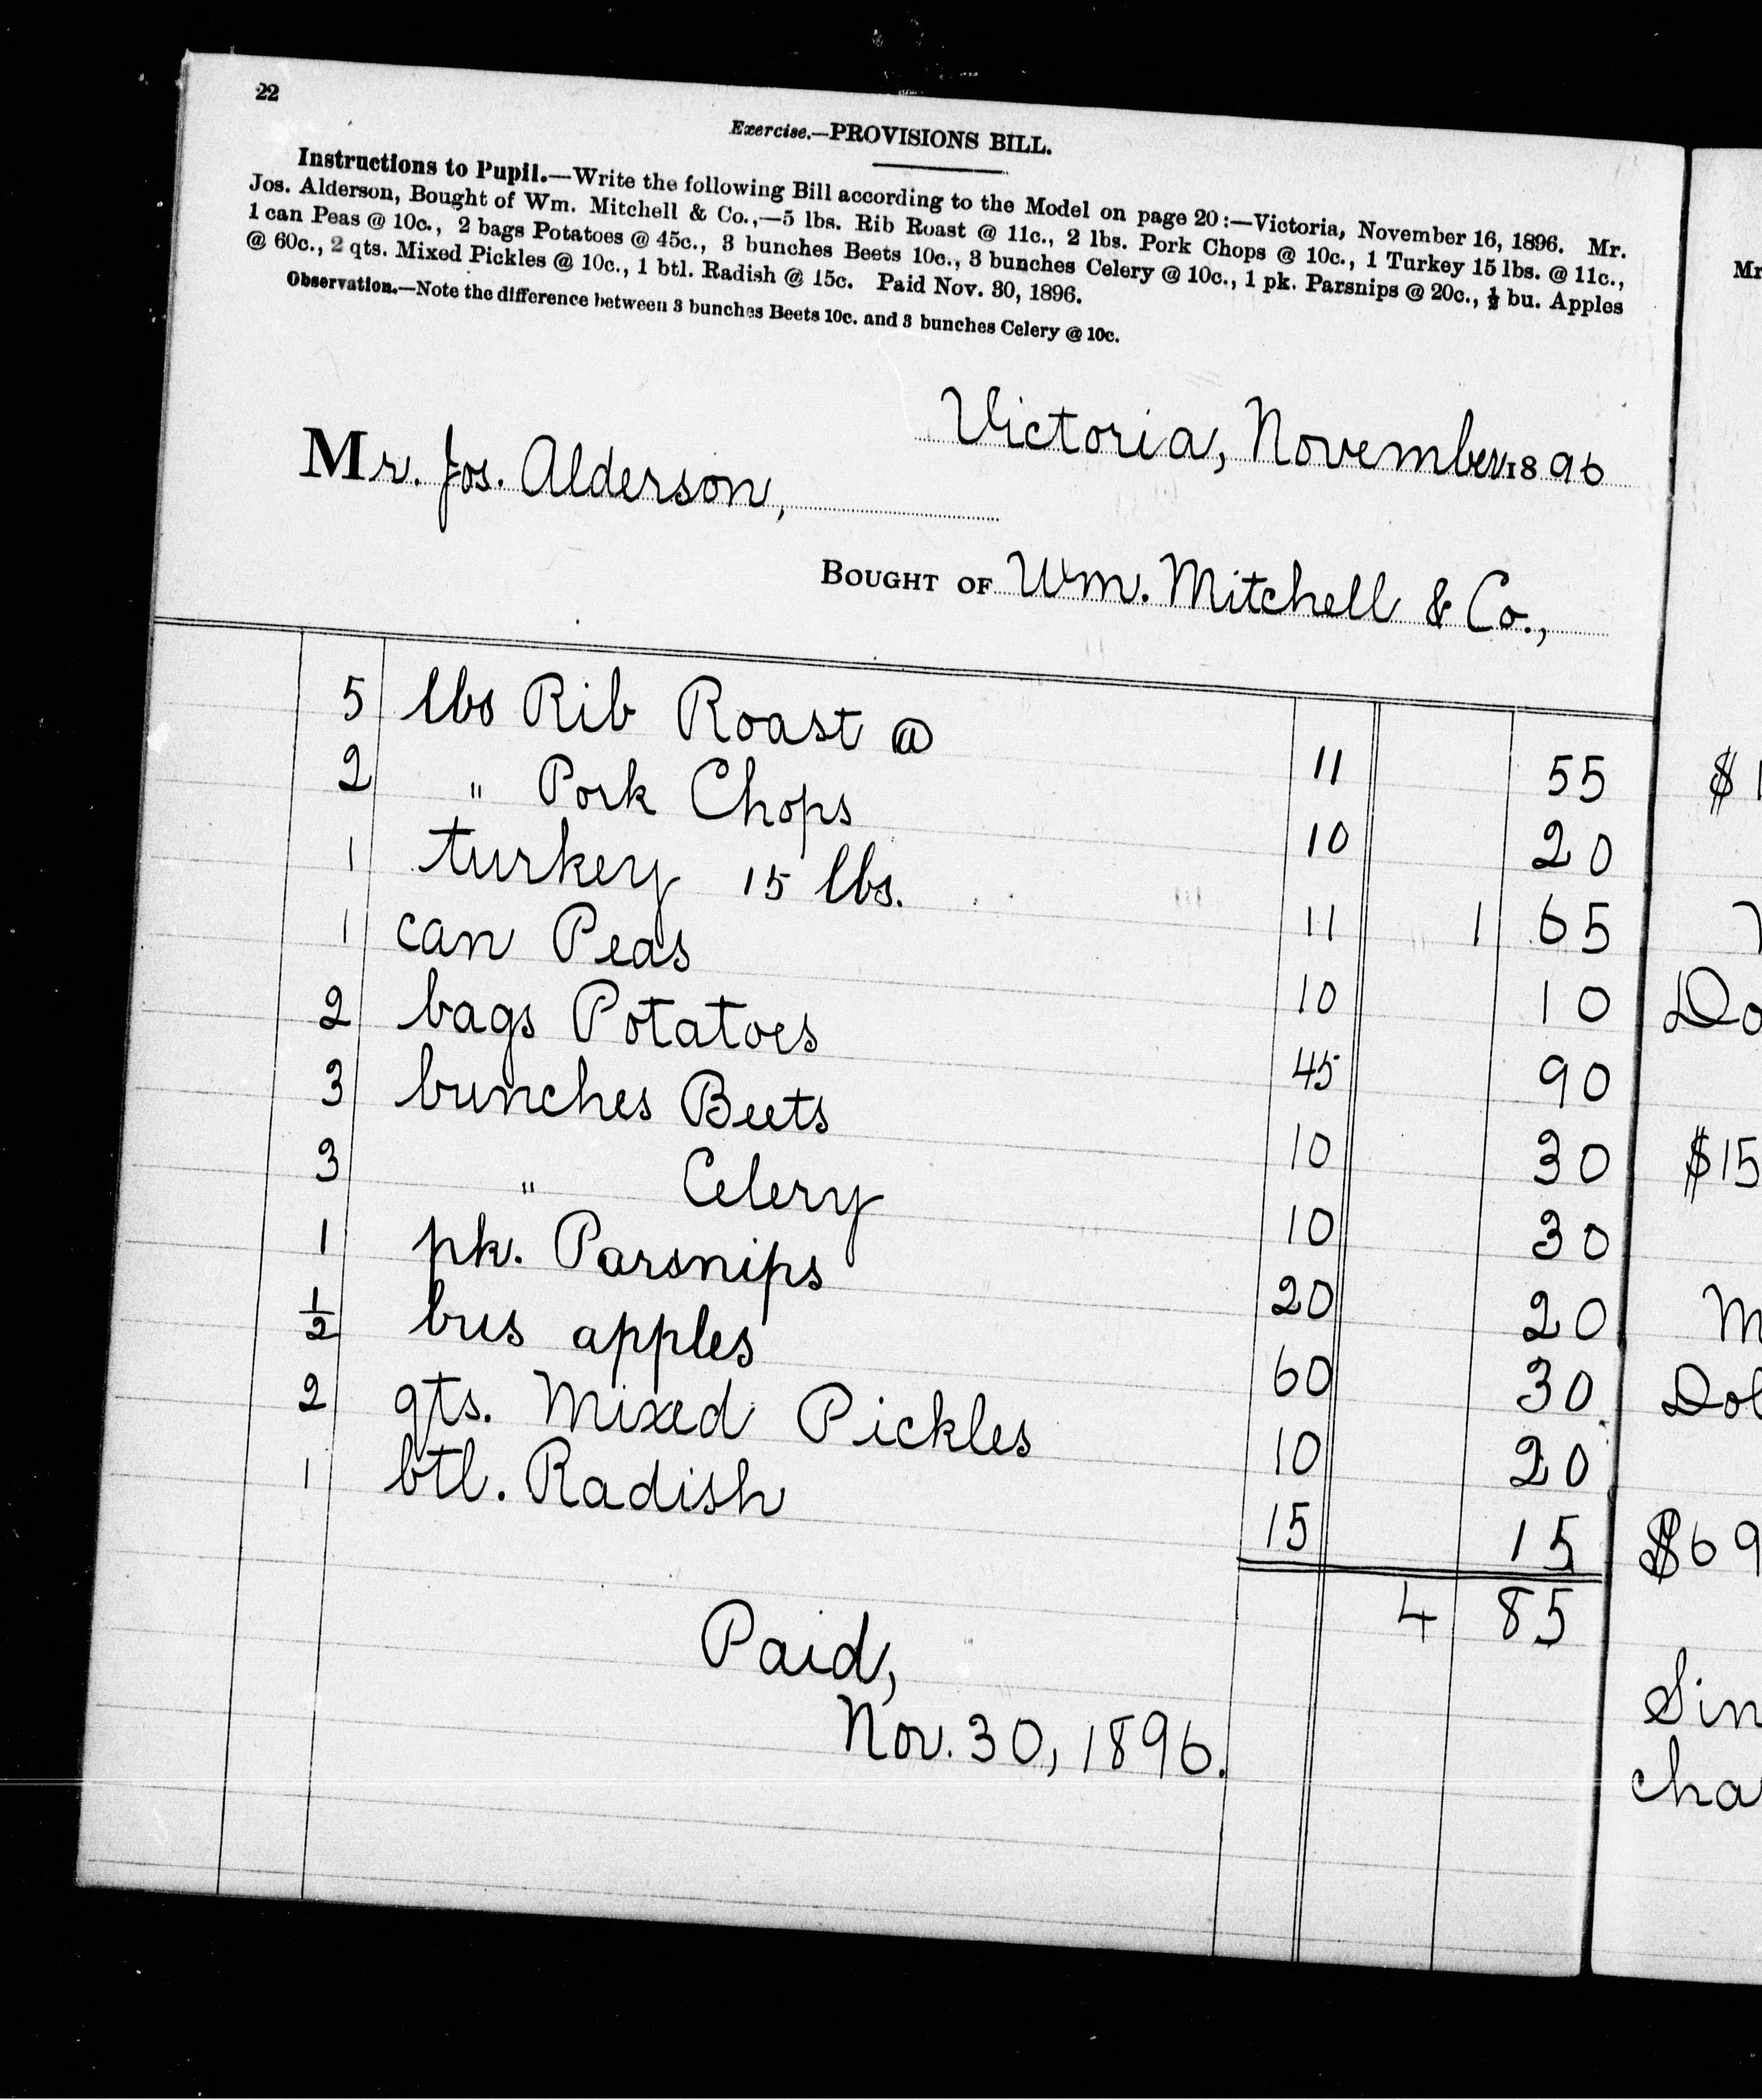 22
Exercise.—PROVISIONS BILL.
Instructions to Pupil.—Write the following Bill according to the Model on page 20:—Victoria, November 16, 1896. Mr.
Jos. Alderson, Bought of Wm. Mitchell & Co.,—5 lbs. Rib Roast @ 11c., 2 lbs. Pork Chops @ 10c., 1 Turkey 15 lbs. @ 11c.,
1 can Peas @ 10c., 2 bags Potatoes @ 45c., 3 bunches Beets 10c., 3 bunches Celery @ 10c., 1 pk. Parsnips @ 20c., ½ bu. Apples
@ 60c., 2 qts. Mixed Pickles @ 10c., 1 btl. Radish @ 15c. Paid Nov. 30, 1896.
Observation.—Note the difference between 3 bunches Beets 10c. and 3 bunches Celery @ 10c.
Victoria, November 1896
Mr. Jos. Alderson,
BOUGHT OF Wm. Mitchell & Co.,
5 lbs Rib Roast @ 11 55
2 " Pork Chops 10 20
1 turkey 15 lbs. 11 1 65
1 can Peas 10 10
2 bags Potatoes 45 90
3 bunches Beets 10 30
3 " Celery 10 30
1 pk. Parsnips 20 20
½ bus apples 60 30
2 qts. Mixed Pickles 10 20
1 btl. Radish 15 15
4 85
Paid,
Nov. 30, 1896.
Mr
$1
Do
$15
M
Dol
$69
Sin
cha